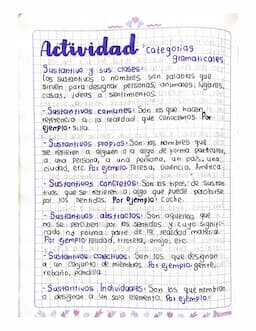 Actividad: categorías
gramaticales
Sustantivo y sus clases:
los sustantivos o nombres son palabras que
sirven para designar personas, animales, lugares,
cosas, ideas o sentimientos.
- Sustantivos comunes: Son los que hacen
referencia a la realidad que conocemos. Por
ejemplo: silla.
- Sustantivos propios: Son los nombres que
se refieren a alguien o a algo de forma particular,
a una persona, a una persona, un país, una
ciudad, etc. Por ejemplo: Teresa, Valencia, América.
- Sustantivos concretos: Son los tipos de sustan
tivos que se refieren a algo que puede percibirse
por los sentidos. Por ejemplo: coche.
- Sustantivos abstractos: Son aquellos que
no se perciben por los sentidos y cuyo signifi
cado no forma parte de la realidad material.
Por ejemplo: lealtad, tristeza, enojo, etc.
- Sustantivos colectivos: Son los que designan
a un conjunto de miembros. Por ejemplo: gente,
rebaño, pandilla.
- Sustantivos Individuales: Son los que nombran
o designan a un solo elemento. Por ejemplo: